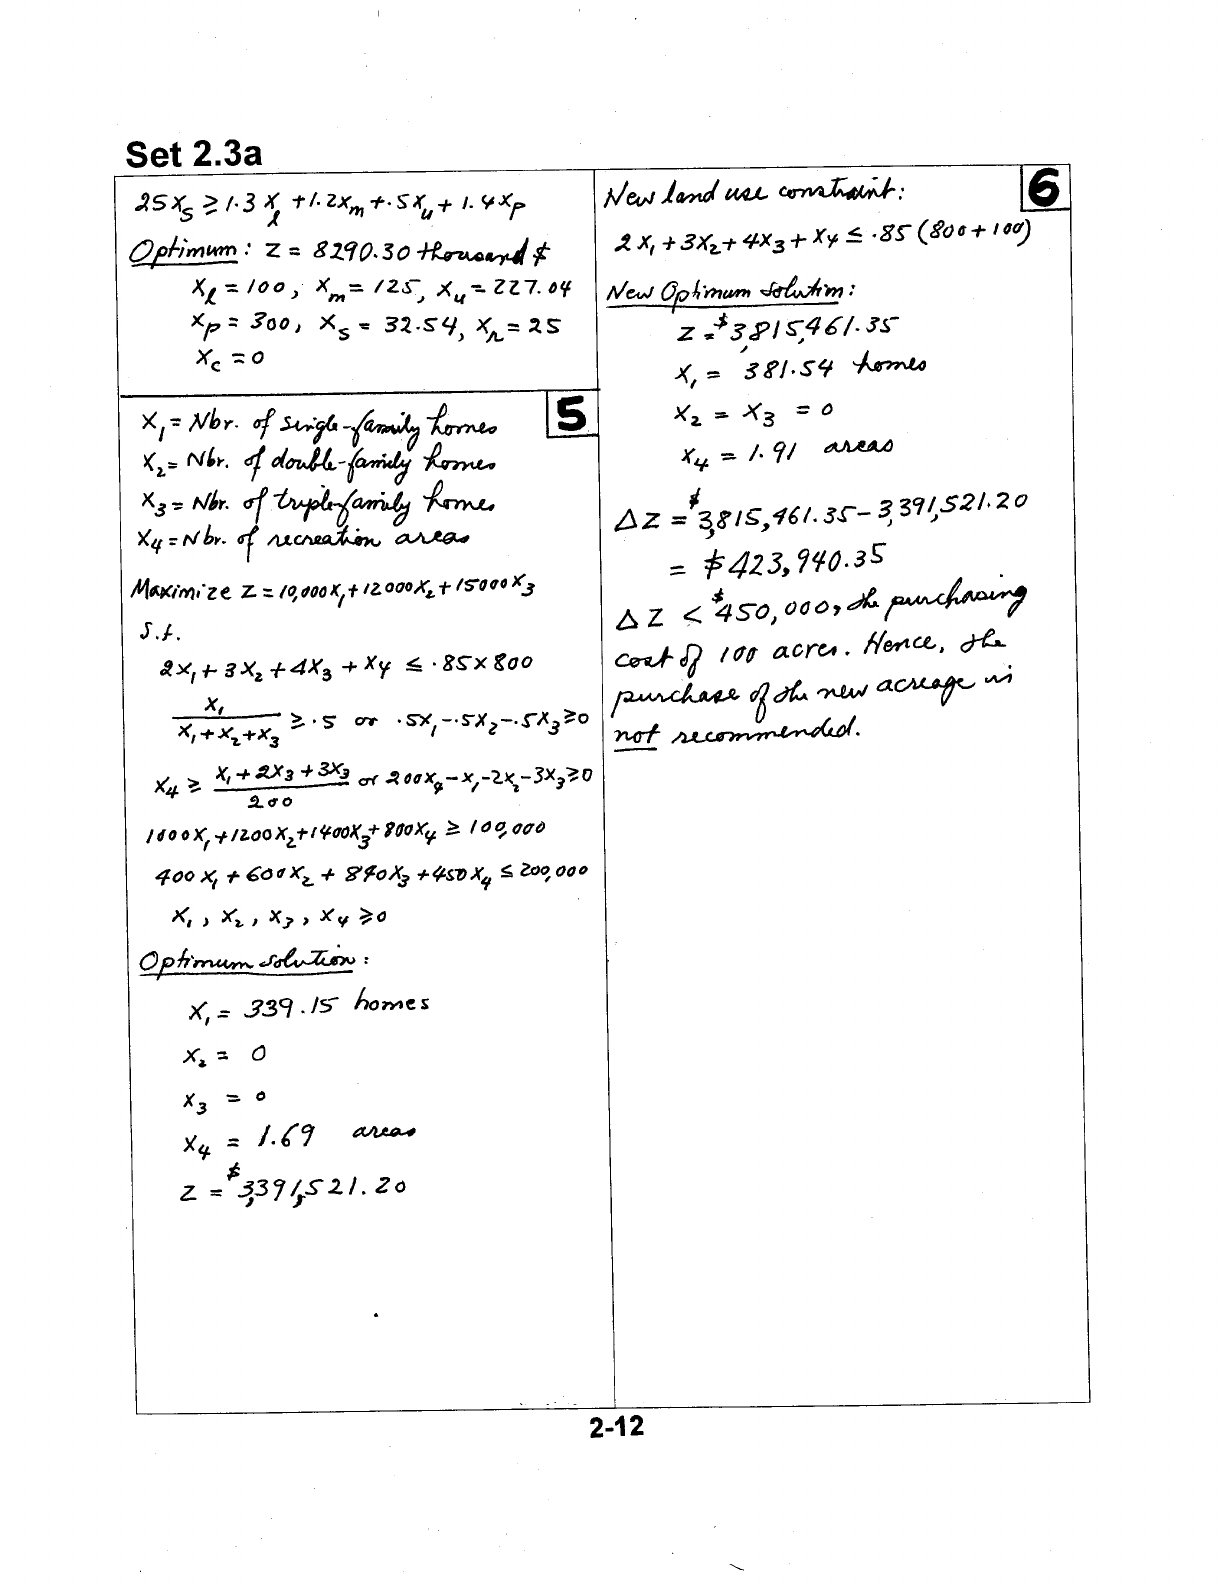 Set 2.3a
25x_s ≥ 1.3x_l + 1.2x_m + .5x_u + 1.4x_p
Optimum: z = 8290.30 thousand $
x_l = 100, x_m = 125, x_u = 227.04
x_p = 300, x_s = 32.54, x_r = 25
x_c = 0
5
x_1 = Nbr. of single-family homes
x_2 = Nbr. of double-family homes
x_3 = Nbr. of triple-family homes
x_4 = Nbr. of recreation areas
Maximize z = 10,000x_1 + 12000x_2 + 15000x_3
s.t.
2x_1 + 3x_2 + 4x_3 + x_4 ≤ .85 x 800
x_1 / (x_1 + x_2 + x_3) ≥ .5 or .5x_1 - .5x_2 - .5x_3 ≥ 0
x_4 ≥ (x_1 + 2x_3 + 3x_3) / 200 or 200x_4 - x_1 - 2x_2 - 3x_3 ≥ 0
1000x_1 + 1200x_2 + 1400x_3 + 800x_4 ≥ 100,000
400x_1 + 600x_2 + 840x_3 + 450x_4 ≤ 200,000
x_1, x_2, x_3, x_4 ≥ 0
Optimum solution:
x_1 = 339.15 homes
x_2 = 0
x_3 = 0
x_4 = 1.69 areas
z = $3,391,521.20
6
New land use constraint:
2x_1 + 3x_2 + 4x_3 + x_4 ≤ .85 (800 + 100)
New Optimum solution:
z = $3,815,461.35
x_1 = 381.54 homes
x_2 = x_3 = 0
x_4 = 1.91 areas
Δz = $3,815,461.35 - 3,391,521.20
= $423,940.35
Δz < $450,000, the purchasing
cost of 100 acres. Hence, the
purchase of the new acreage is
not recommended.
2-12